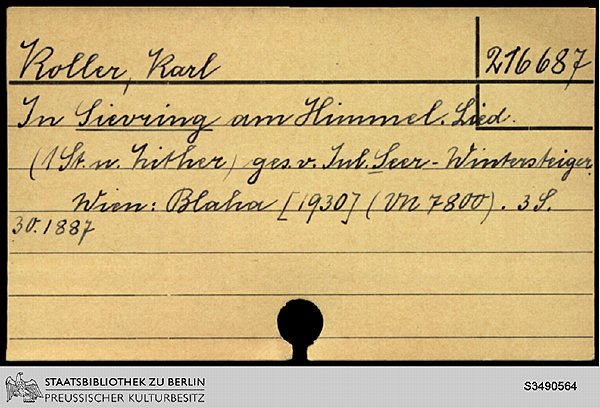 Koller, Karl
216687
In Sievring am Himmel. Lied.
(1 St. u. Zither) ges. v. Jul. Seer-Wintersteiger.
Wien: Blaha [1930] (VN 7800). 3 S.
30.1887
STAATSBIBLIOTHEK ZU BERLIN
PREUSSISCHER KULTURBESITZ
S3490564